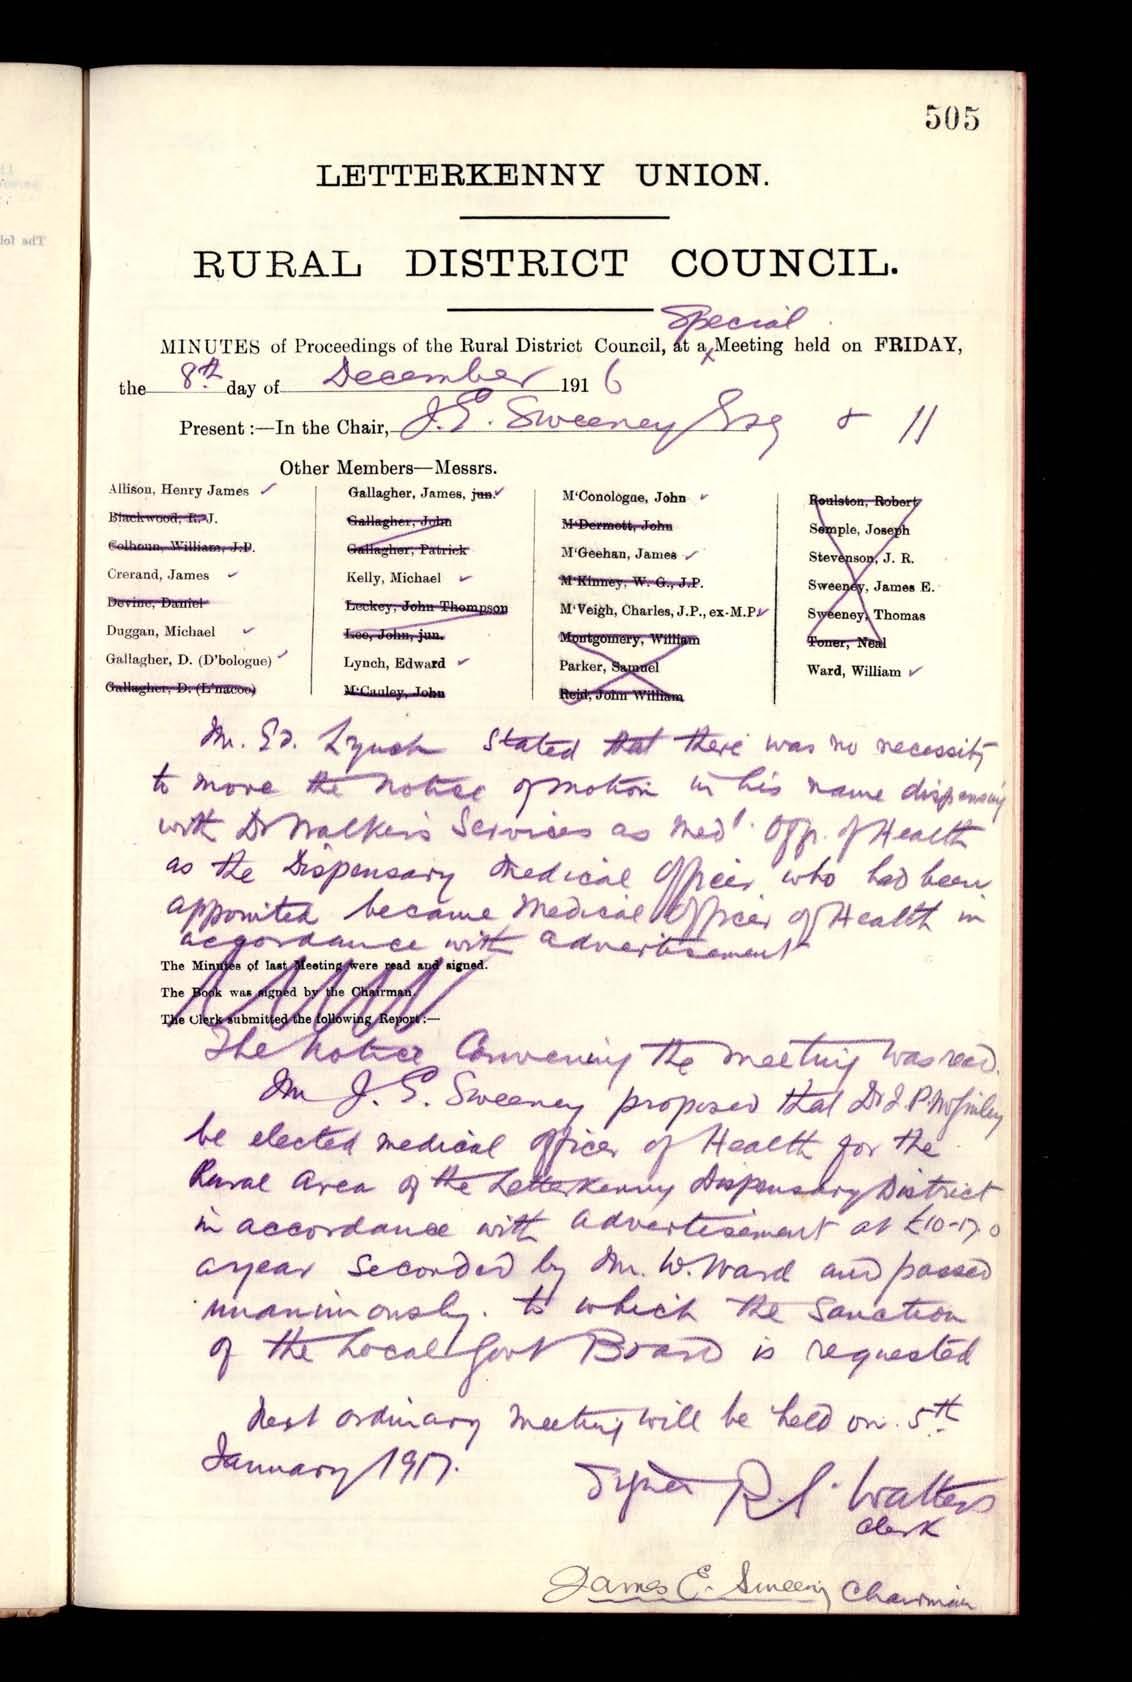 505
LETTERKENNY UNION.
RURAL DISTRICT COUNCIL.
Special
MINUTES of Proceedings of the Rural District Council, at a Meeting held on FRIDAY,
the 8th day of December 1916
Present :—In the Chair, J. E. Sweeney Esq & 11
Other Members—Messrs.
Allison, Henry James
Blackwood, R. J.
Colhoun, William, J.P.
Crerand, James
Devine, Daniel
Duggan, Michael
Gallagher, D. (D'bologue)
Gallagher, D. (L'nacoo)
Gallagher, James, jun.
Gallagher, John
Gallagher, Patrick
Kelly, Michael
Leckey, John Thompson
Lee, John, jun.
Lynch, Edward
M'Cauley, John
M'Conologue, John
M'Dermott, John
M'Geehan, James
M'Kinney, W. G., J.P.
M'Veigh, Charles, J.P., ex-M.P.
Montgomery, William
Parker, Samuel
Reid, John William
Roulston, Robert
Semple, Joseph
Stevenson, J. R.
Sweeney, James E.
Sweeney, Thomas
Toner, Neal
Ward, William
Mr. Ed. Lynch stated that there was no necessity
to move the notice of motion in his name dispensing
with Dr Walker's Services as Medl. Offr. of Health
as the Dispensary Medical Officer who had been
appointed became Medical Officer of Health in
accordance with advertisement
The Minutes of last Meeting were read and signed.
The Book was signed by the Chairman.
The Clerk submitted the following Report :—
The Notice Convening the meeting was read.
Mr J. E. Sweeney proposed that Dr J. P. McGinley
be elected medical officer of Health for the
Rural Area of the Letterkenny Dispensary District
in accordance with advertisement at £10-17-0
a year seconded by Mr. W. Ward and passed
unanimously. to which the Sanction
of the Local Govt Board is requested
Next ordinary meeting will be held on 5th
January 1917.
Signed R. S. Watters
Clerk
James E. Sweeney Chairman